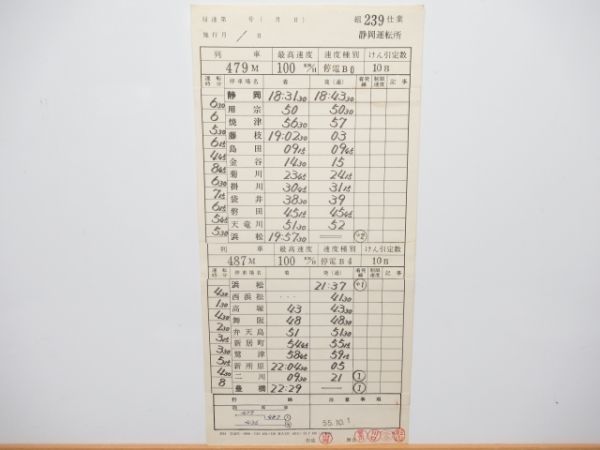 組 239 仕業
施行月 / 日 静岡運転所
列 車 最高速度 速度種別 けん引定数
479M 100 停電B 10B
運転時分 停車場名 着 発(通) 着発線 制限速度 記事
静岡 18:31 30 18:43 30
6 30 用宗 50 50 30
6 焼津 56 30 57
5 30 藤枝 19:02 30 03
6 15 島田 09 15 09 45
4 45 金谷 14 30 15
8 45 菊川 23 45 24 15
6 30 掛川 30 45 31 15
7 15 袋井 38 30 39
6 15 磐田 45 15 45 45
5 45 天竜川 51 30 52
5 30 浜松 19:57 30 ═ +2
列 車 最高速度 速度種別 けん引定数
487M 100 停電B4 10B
運転時分 停車場名 着 発(通) 着発線 制限速度 記事
浜松 21:37 +1
4 30 西浜松 ... 41 30
1 30 高塚 43 43 30
4 30 舞阪 48 48 30
2 30 弁天島 51 51 30
3 15 新居町 54 45 55 15
3 30 鷲津 58 45 59 15
5 15 新所原 22:04 30 05
4 30 二川 09 30 21 1
8 豊橋 22:29 ═ 1
注意事項
479 487
55.10.1